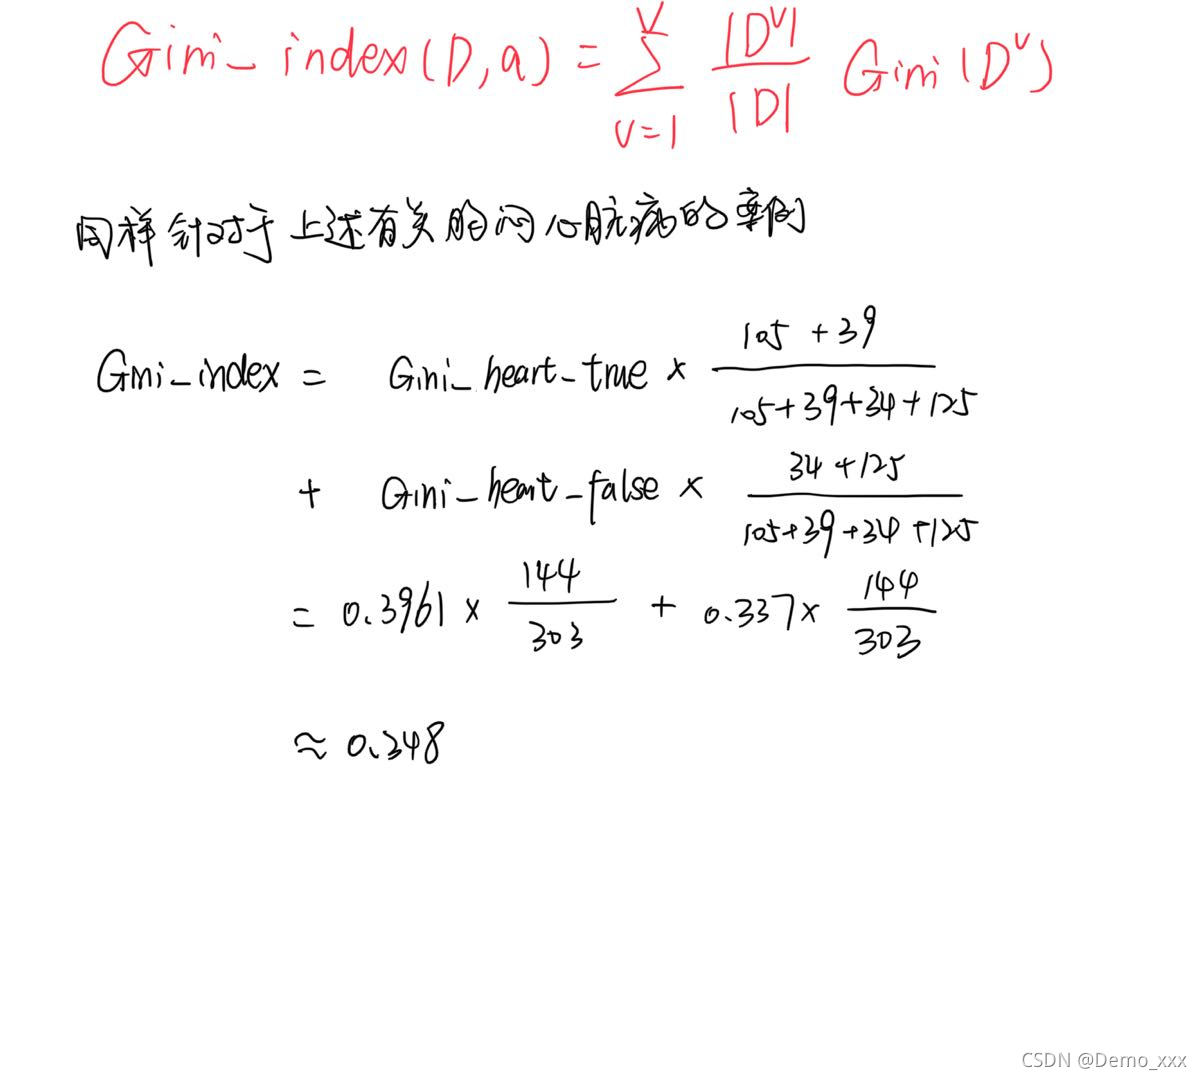 Gini_index(D,a) = ∑_{v=1}^{V} |D^v|/|D| Gini(D^v)
同样针对于上述有关胸闷心脏病的案例
Gini_index = Gini_heart_true × (105+39)/(105+39+34+125)
+ Gini_heart_false × (34+125)/(105+39+34+125)
= 0.3961 × 144/303 + 0.337 × 144/303
≈ 0.348
CSDN @Demo_xxx